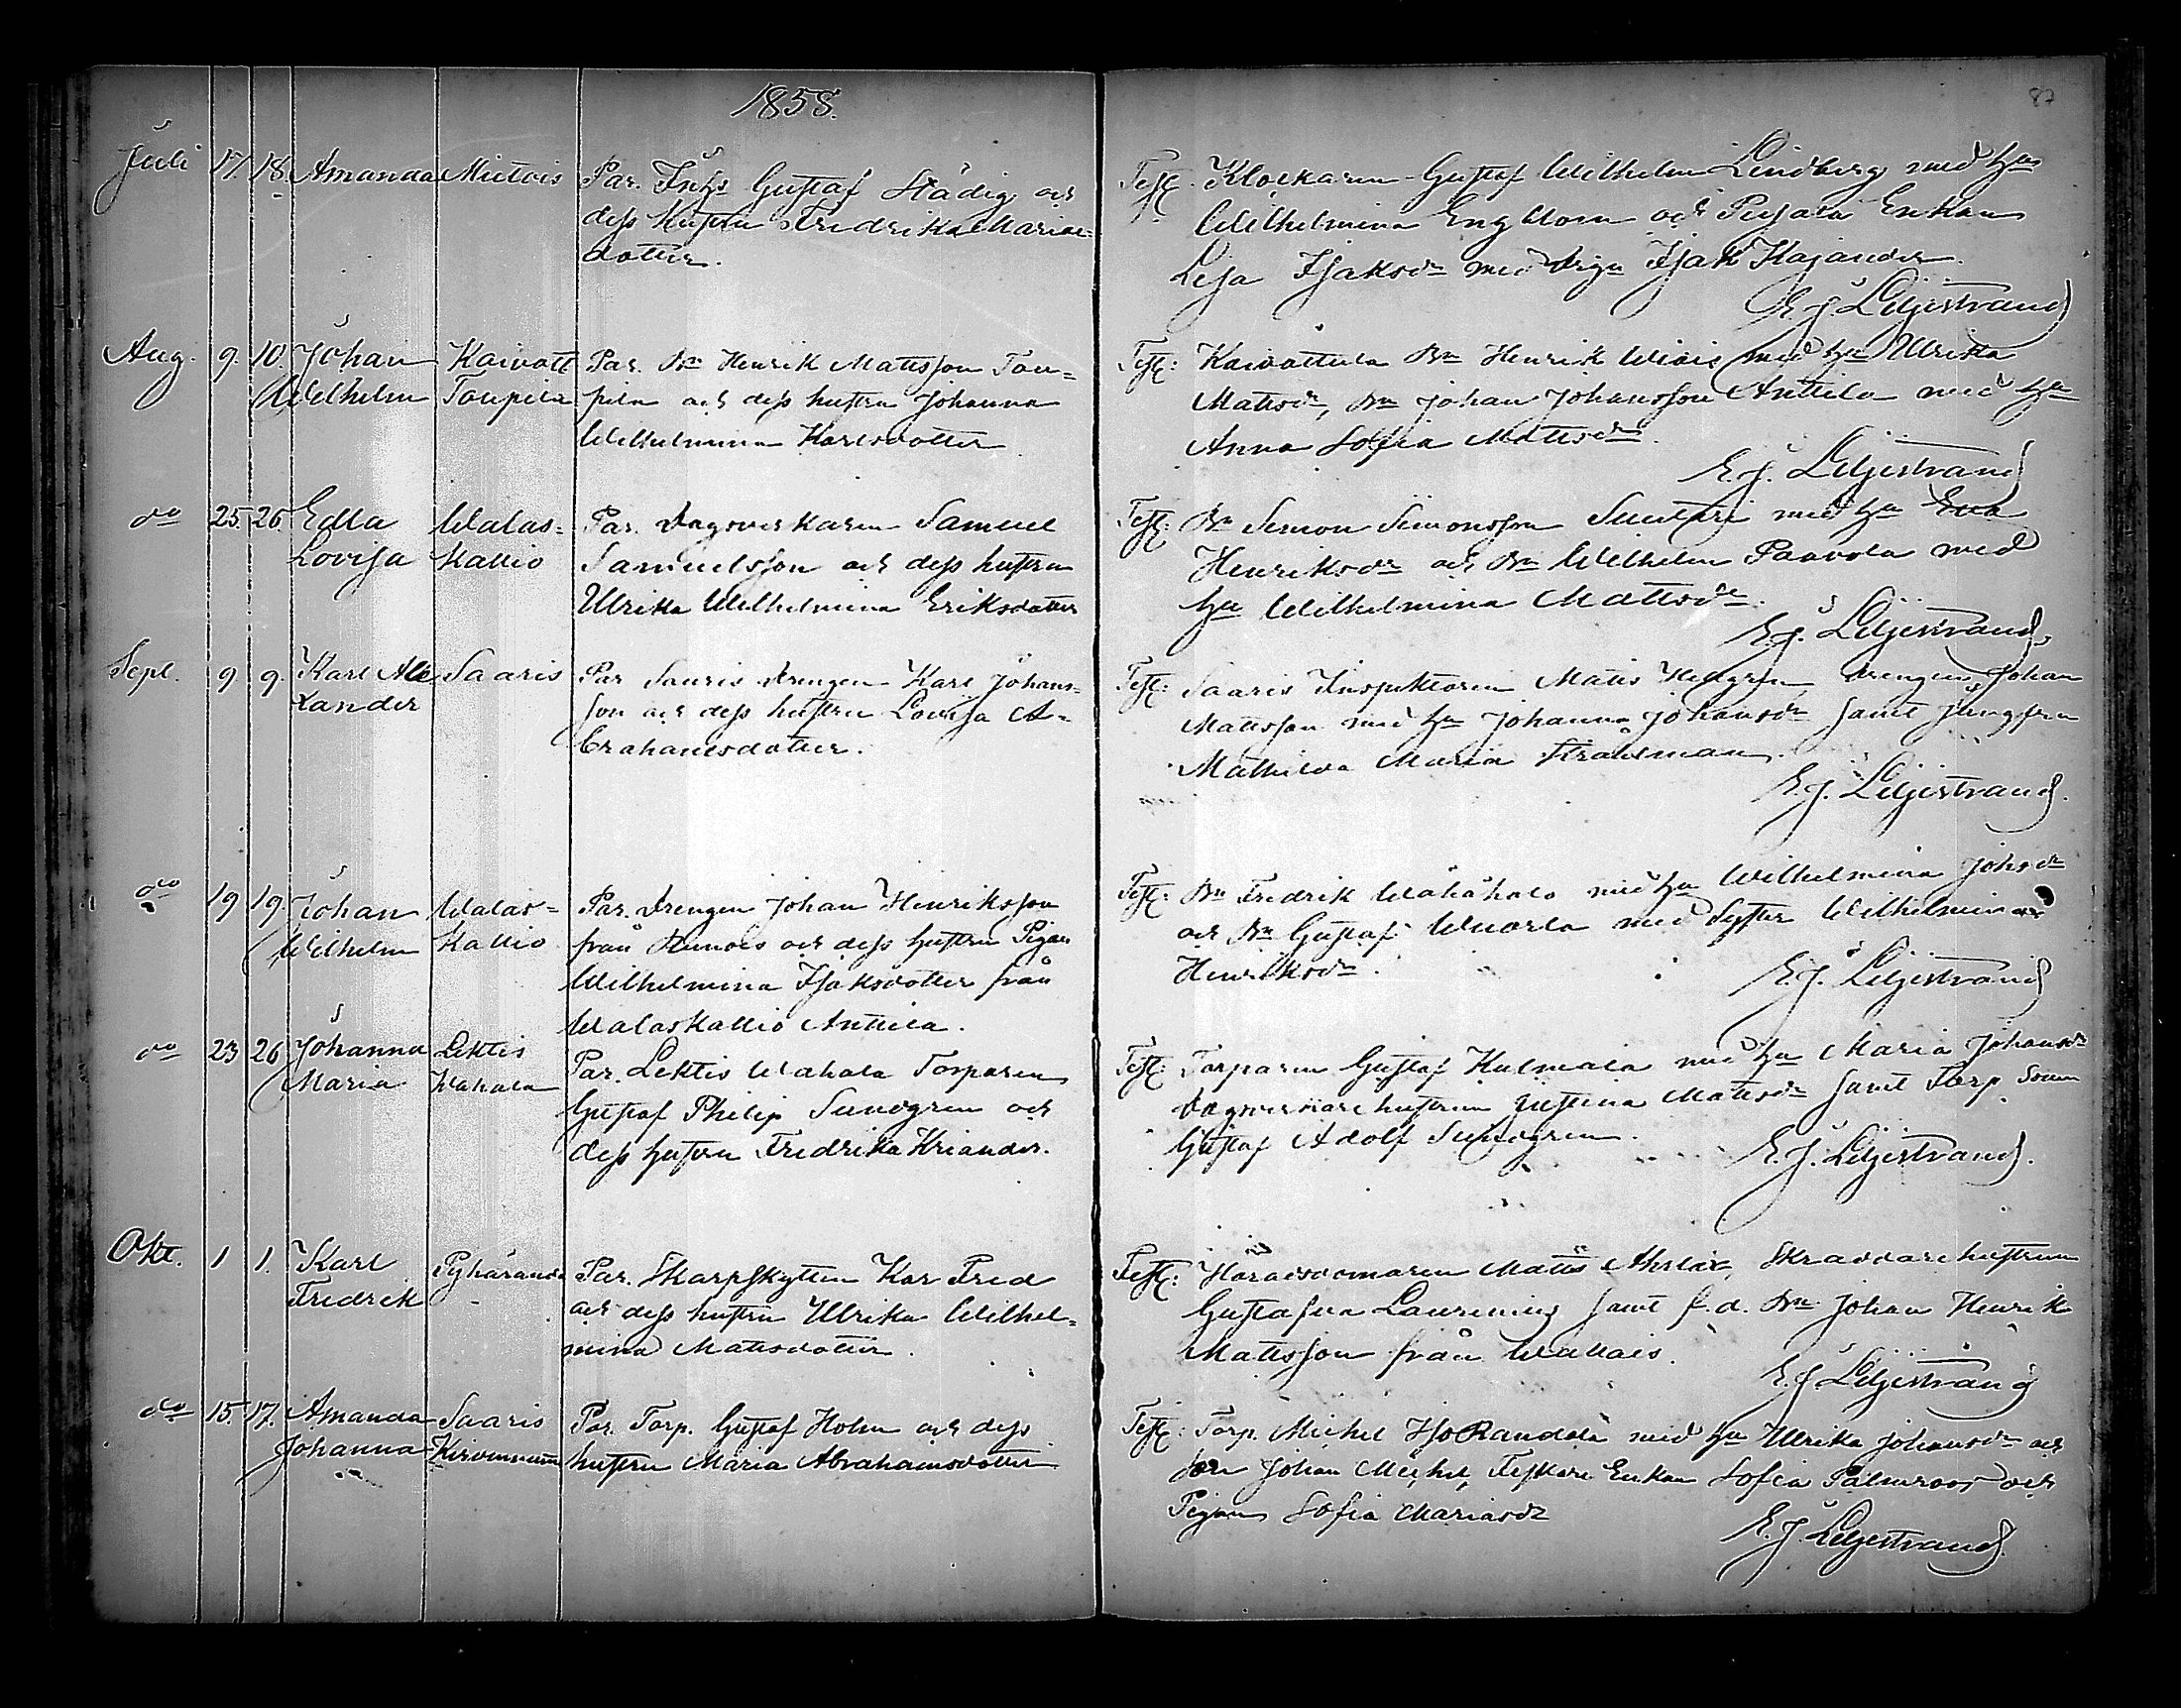 1858.
87
Juli 17. 18. Amanda Mietois Par. Inhs Gustaf Städig och
dess hustru Fredrika Marias-
dotter.
Test. Klockaren Gustaf Wilhelm Lindberg med hu
Wilhelmina Engblom och Enkan
Lisa Isaksdr med drgn Isak Kajander.
E J Liljestrand
Aug. 9. 10. Johan Kaivatt Par. Bn Henrik Mattsson Tou-
Wilhelm Toupila pila och dess hustru Johanna
Wilhelmina Karlsdotter
Test: Kaivattula Bn Henrik med hu Ulrika
Mattsdr, Bn Johan Johansson Anttila med hu
Anna Sofia Mattsdr.
E. J. Liljestrand
do 25. 26 Edla Walas- Par. Dagsverkaren Samuel
Lovisa kallio Samuelsson och dess hustru
Ulrika Wilhelmina Eriksdotter
Test: Bn Simon Simonsson med hu Eva
Henriksdr och Bn Wilhelm Paavola med
hu Wilhelmina Mattsdr.
E. J. Liljestrand
Sept. 9 9. Karl Ale- Saaris Par Sauris drengen Karl Johans-
xander son och dess hustru Lovisa A-
brahamsdotter.
Test: Saaris Inspektoren Matts Hedgren, drengen Johan
Mattsson med hu Johanna Johansdr samt Jungfru
Mathilda Maria Stråhlman.
E. J. Liljestrand.
do 19 19. Johan Walas- Par. Drengen Johan Henriksson
Wilhelm kallio från och dess hustru Pigan
Wilhelmina Isaksdotter från
Walaskallio Anttila.
Test: Bn Fredrik Wähähalo med hu Wilhelmina Johsdr
och Bn Gustaf Wuorela med Syster Wilhelmina
Henriksdr.
E. J. Liljestrand
do 23 26 Johanna Lektis Par. Lektis Wahala Torparen
Maria Wahala Gustaf Philip Sundgren och
dess hustru Fredrika Kriander.
Test: Torparen Gustaf Kulmala med hu Maria Johansdr
Dagsverkare hustrun Justina Mattsdr samt Torp. Sonen
Gustaf Adolf Sundgren.
E. J. Liljestrand.
Okt. 1 1. Karl Pyhäranda Par. Skarpskytten Kar Fred
Fredrik och dess hustru Ulrika Wilhel-
mina Mattsdotter.
Test: Häradsdomaren Matts Skräddare hustrun
Gustafva Laurenius samt f. d. Bn Johan Henrik
Mattsson från Wallais.
E. J. Liljestrand
do 15. 17. Amanda Saaris Par. Torp. Gustaf Holm och dess
Johanna hustru Maria Abrahamsdotter
Test: Torp. Michel Isoranda med hu Ulrika Johansdr och
son Johan Michel, Enkan Sofia Palmroos och
Pigan Sofia Mariasdr
E. J. Liljestrand